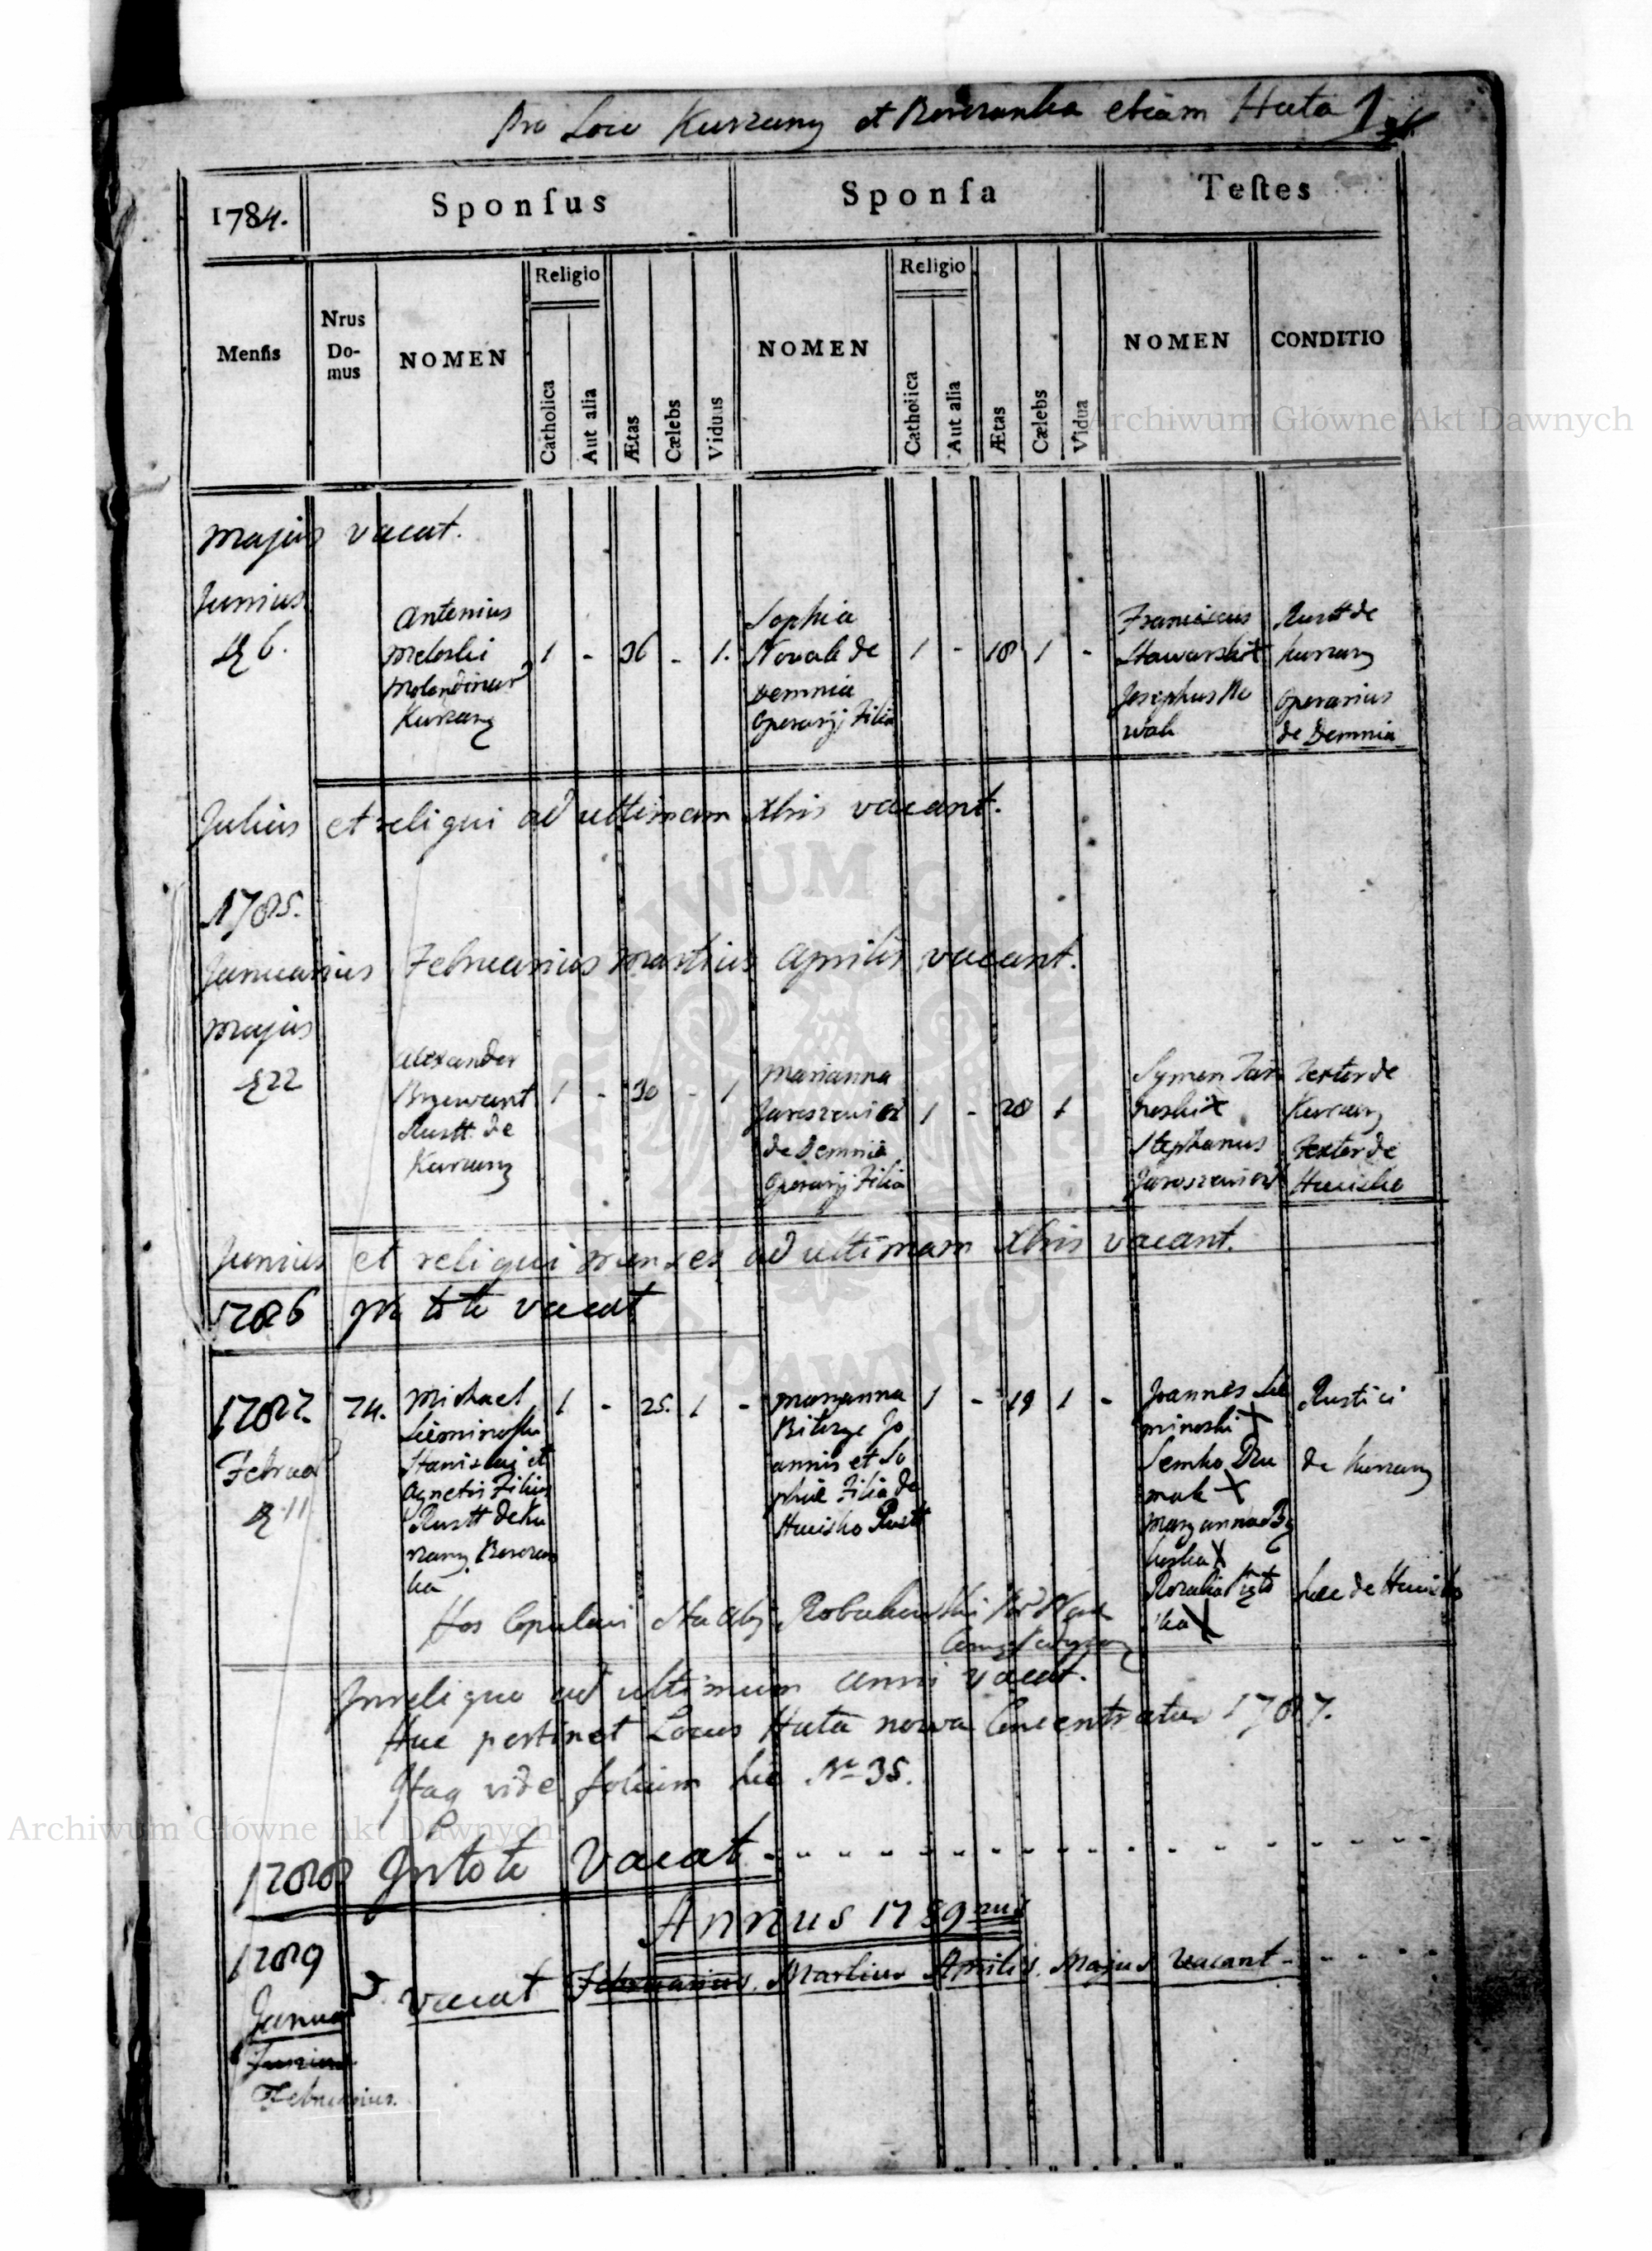 Pro Loco Kurzany et Bereranka etiam Huta 1
1784.
Sponſus
Sponſa
Teſtes
Menſis
Nrus Do-mus
NOMEN
Religio
Catholica
Aut alia
Ætas
Cælebs
Viduus
NOMEN
Religio
Catholica
Aut alia
Ætas
Cælebs
Vidua
NOMEN
CONDITIO
Archiwum Główne Akt Dawnych
Majus vacat.
Junius
6.
Antonius
Kurzany
1 - 36 - 1.
Sophia
Nowak de
Demnia
Operarij Filia
1 - 18 1 -
Franciscus
Stawarski X
Josephus No
wak
Rustt de
Kurzany
Operarius
de Demnia
Julius et reliqui ad ultimam Xbris vacant.
1785.
Januarius Februarius Martius Aprilis vacant.
Majus
22
Alexander
Rustt. de
Kurzany
1 - 30 - 1
Marianna
Jaroszewicz
de Demnia
Operarij Filia
1 - 20 1
Symon
Stephanus
Jaroszewicz
Textor de
Kurzany
Textor de
Hucisko
Junius et reliqui menses ad ultimam Xbris vacant.
1786 in toto vacat
1787.
Februar
11
74.
Michael
Stanislai et
Agnetis Filius
Rustt de Ku
rzany
ka
1 - 25. 1 -
Maryanna
Jo
annis et So
phiæ Filia de
Hucisko Rustt
1 - 19 1 -
Joannes Sie
minoski X
Semko
X
Maryanna
X
Rozalia
X
Rustici
de Kurzany
de Hucisko
Hos Copulavi
In reliquo ad ultimum anni vacat.
Huc pertinet Locus Huta nowa 1787.
Itaq vide folium hic No 35.
Archiwum Główne Akt Dawnych
1788 In toto Vacat -
Annus 1789nus
1789
Januar vacat Februarius. Martius Aprilis. Majus vacant -
Junius
Februarius.
ARCHIWUM GŁÓWNE AKT DAWNYCH